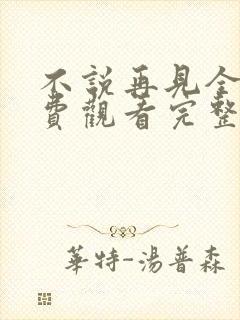 不說再見全
費觀看完整
華特-湯普森